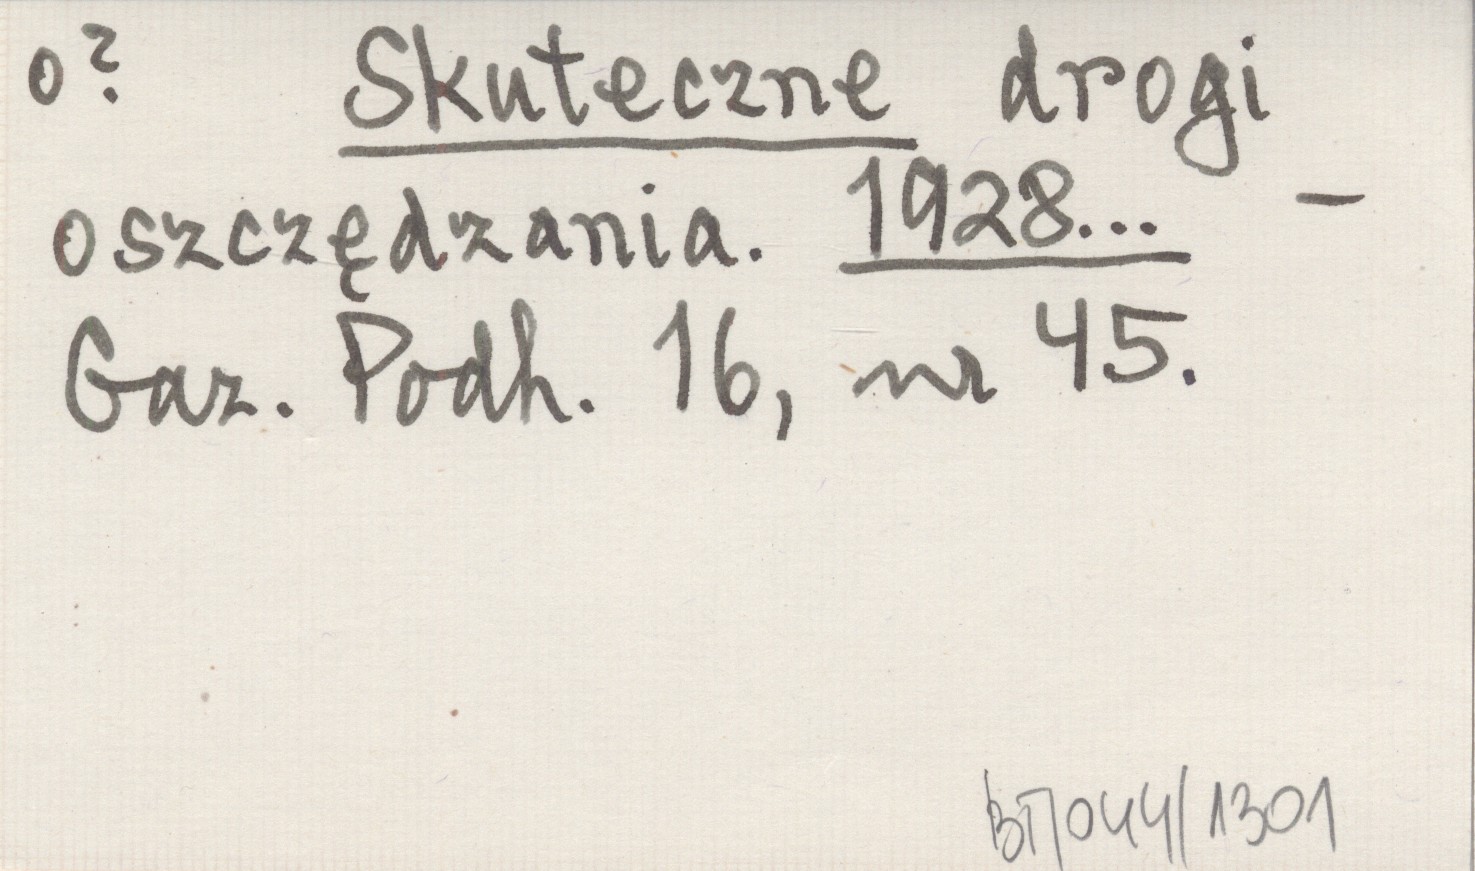 o? Skuteczne drogi
oszczędzania. 1928... –
Gaz. Podh. 16, nr 45.
BT/044/1301